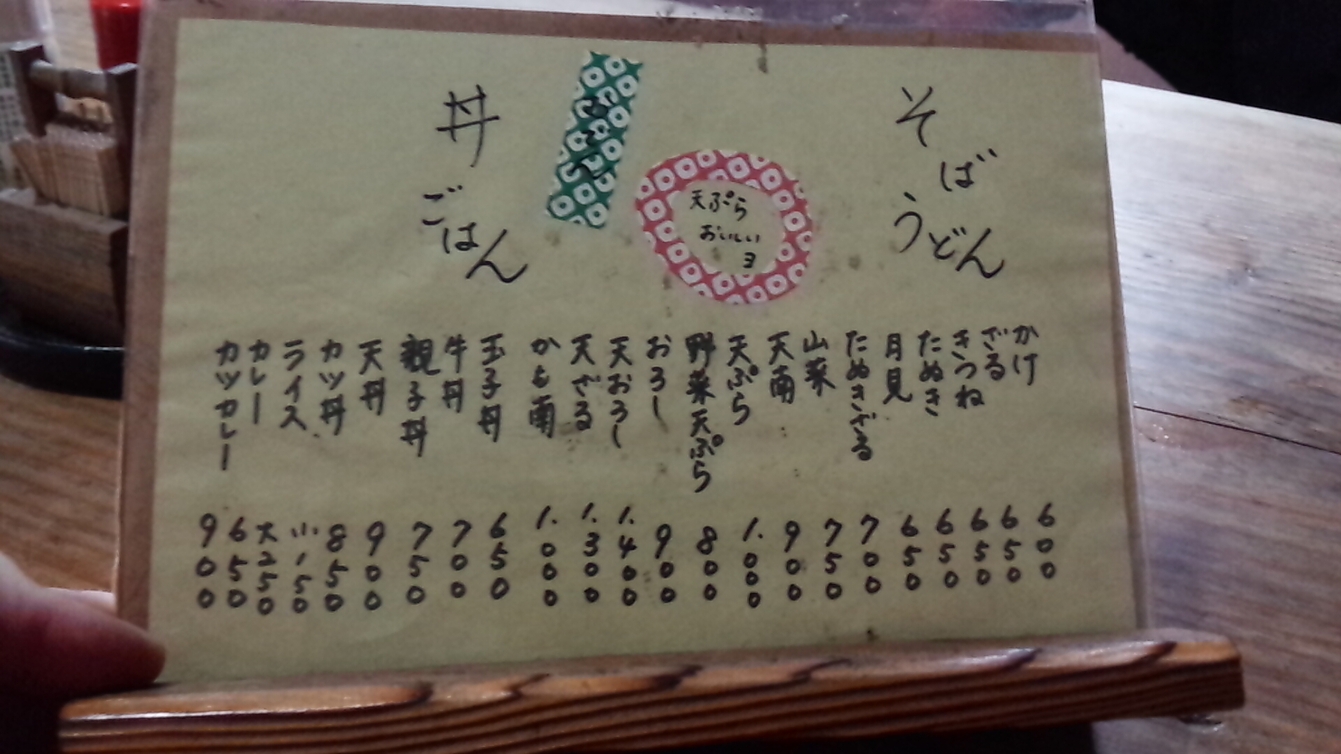 そば
うどん
かけ 600
ざる 650
きつね 650
たぬき 650
月見 650
たぬきざる 700
山菜 750
天南 900
天ぷら 1.000
野菜天ぷら 800
おろし 900
天おろし 1.400
天ざる 1.300
かも南 1.000
天ぷら
おいしい
ヨ
丼
ごはん
玉子丼 650
牛丼 700
親子丼 750
天丼 900
カツ丼 850
ライス 小150 大250
カレー 650
カツカレー 900